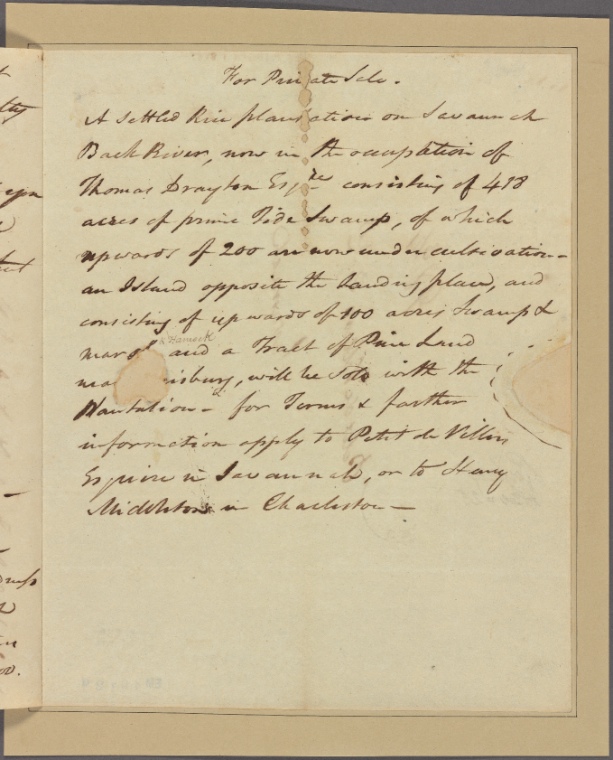 For Private Sale.
A settled Rice plantation on Savannah
Back River, now in the occupation of
Thomas Drayton Esqre consisting of 418
acres of prime Tide Swamp, of which
upwards of 200 are now under cultivation -
an Island opposite the Landing place, and
consisting of upwards of 100 acres Swamp &
& Hamock
marsh and a Tract of Pine Land
nisburg, will be sold with the
Plantation - for Terms & farther
information apply to Petit de Villers
Esquire in Savannah, or to Henry
Middleton in Charleston -